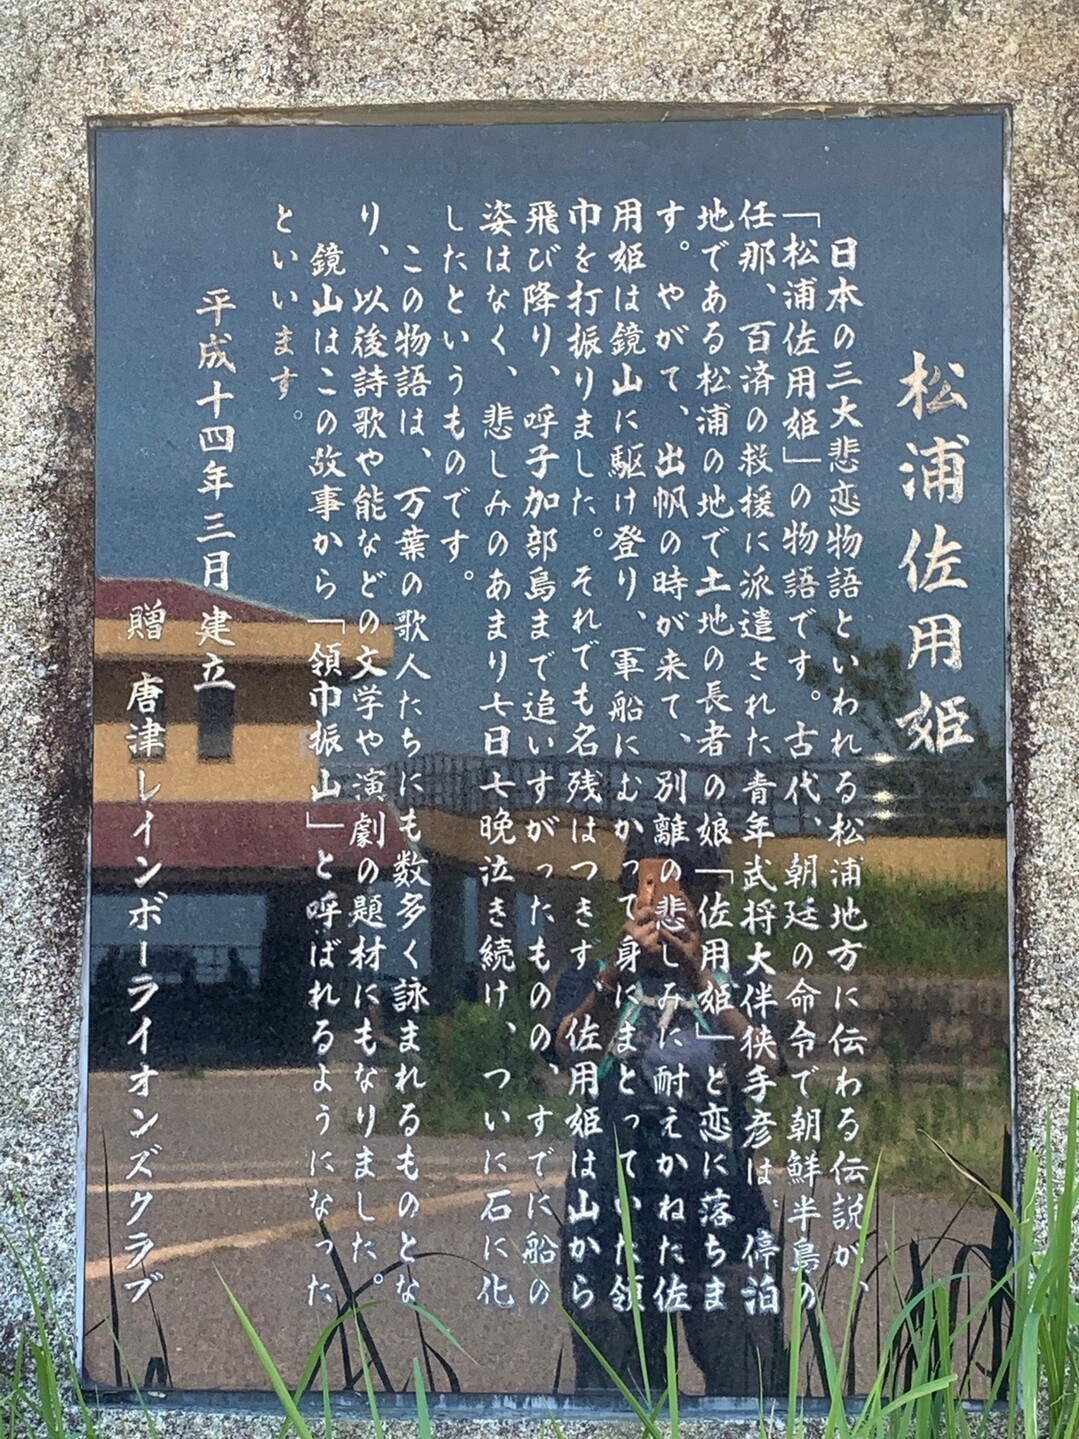 松浦佐用姫
日本の三大悲恋物語といわれる松浦地方に伝わる伝説が、
「松浦佐用姫」の物語です。古代、朝廷の命令で朝鮮半島の
任那、百済の救援に派遣された青年武将大伴狭手彦は、停泊
地である松浦の地で土地の長者の娘「佐用姫」と恋に落ちま
す。やがて、出帆の時が来て、別離の悲しみに耐えかねた佐
用姫は鏡山に駆け登り、軍船にむかって身にまとっていた領
巾を打振りました。それでも名残はつきず、佐用姫は山から
飛び降り、呼子加部島まで追いすがったものの、すでに船の
姿はなく、悲しみのあまり七日七晩泣き続け、ついに石に化
したというものです。
この物語は、万葉の歌人たちにも数多く詠まれるものとな
り、以後詩歌や能などの文学や演劇の題材にもなりました。
鏡山はこの故事から「領巾振山」と呼ばれるようになった
といいます。
平成十四年三月 建立
贈 唐津レインボーライオンズクラブ